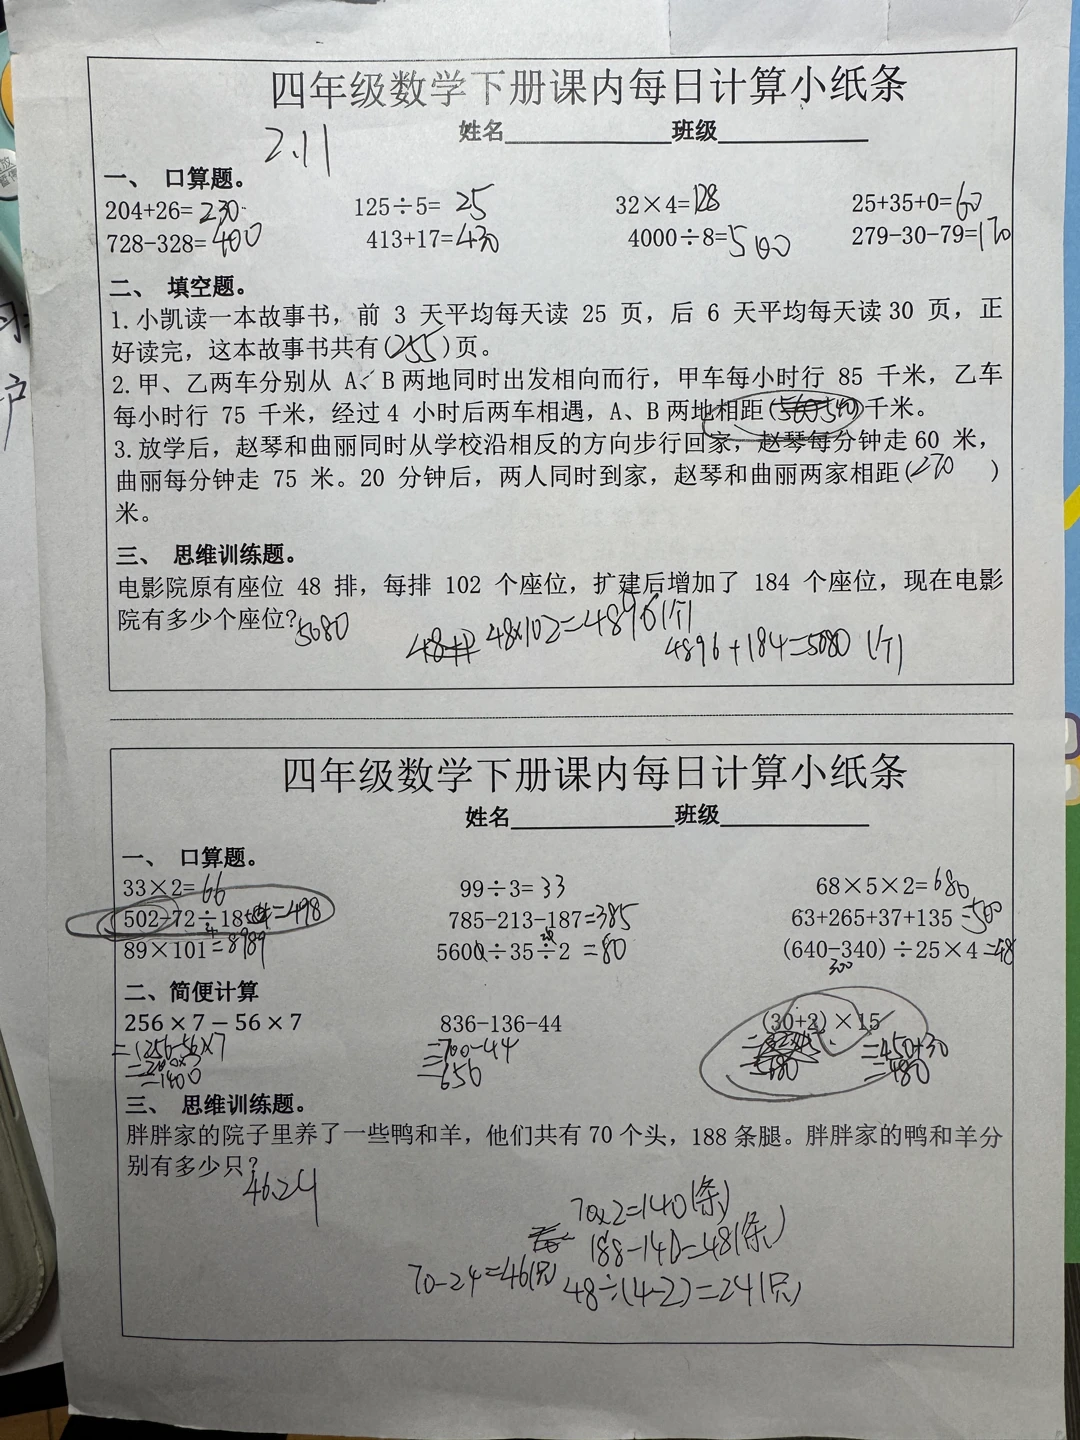 四年级数学下册课内每日计算小纸条
姓名 班级
2.11
一、 口算题。
204+26=230 125÷5=25 32×4=128 25+35+0=60
728-328=400 413+17=430 4000÷8=500 279-30-79=170
二、 填空题。
1.小凯读一本故事书，前 3 天平均每天读 25 页，后 6 天平均每天读30 页，正
好读完，这本故事书共有(255)页。
2.甲、乙两车分别从 A、B两地同时出发相向而行，甲车每小时行 85 千米，乙车
每小时行 75 千米，经过4 小时后两车相遇，A、B两地相距(540)千米。
3.放学后，赵琴和曲丽同时从学校沿相反的方向步行回家，赵琴每分钟走60 米，
曲丽每分钟走 75 米。20 分钟后，两人同时到家，赵琴和曲丽两家相距(270 )
米。
三、 思维训练题。
电影院原有座位 48 排，每排 102 个座位，扩建后增加了 184 个座位，现在电影
院有多少个座位?5080
48×102=4896(个)
4896+184=5080(个)
四年级数学下册课内每日计算小纸条
姓名 班级
一、 口算题。
33×2=66 99÷3=33 68×5×2=680
502-72÷18=498 785-213-187=385 63+265+37+135=500
4
89×101=8989 5600÷35÷2=80 (640-340)÷25×4=48
300
二、简便计算
256×7-56×7 836-136-44 (30+2)×15
=(256-56)×7 =700-44 =450+30
=200×7 =656 =480
=1400
三、 思维训练题。
胖胖家的院子里养了一些鸭和羊，他们共有70个头，188条腿。胖胖家的鸭和羊分
别有多少只?
46、24
70×2=140(条)
188-140=48(条)
70-24=46(只) 48÷(4-2)=24(只)